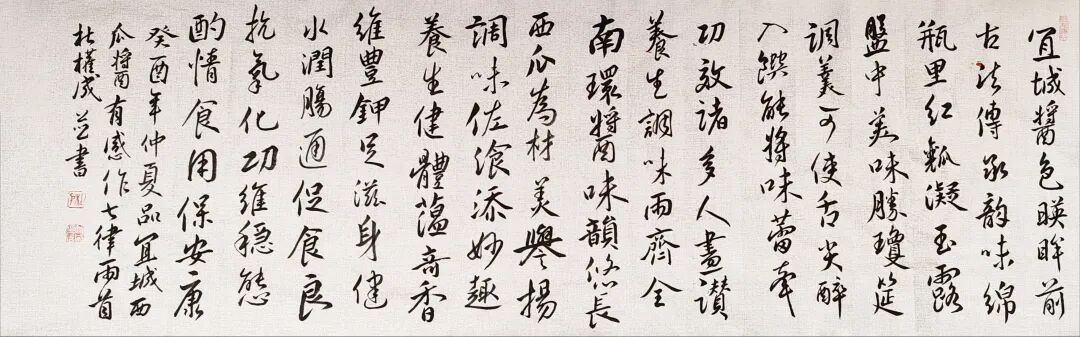 宜城醬色暎眸前
古法傳承韵味綿
瓶里红瓤凝玉露
盤中美味勝瓊筵
调羹可使舌尖醉
入饌能将味蕾牽
功效諸多人盡讃
養生調味兩齊全
南環醬味韻悠長
西瓜為材美譽揚
調味佐飧添妙趣
養生健體蕴奇香
維豐鉀足滋身健
水潤腸通促食良
抗氧化功維穩態
酌情食用保安康
癸酉年仲夏品宜城西
瓜醬有感作七律兩首
杜成并書